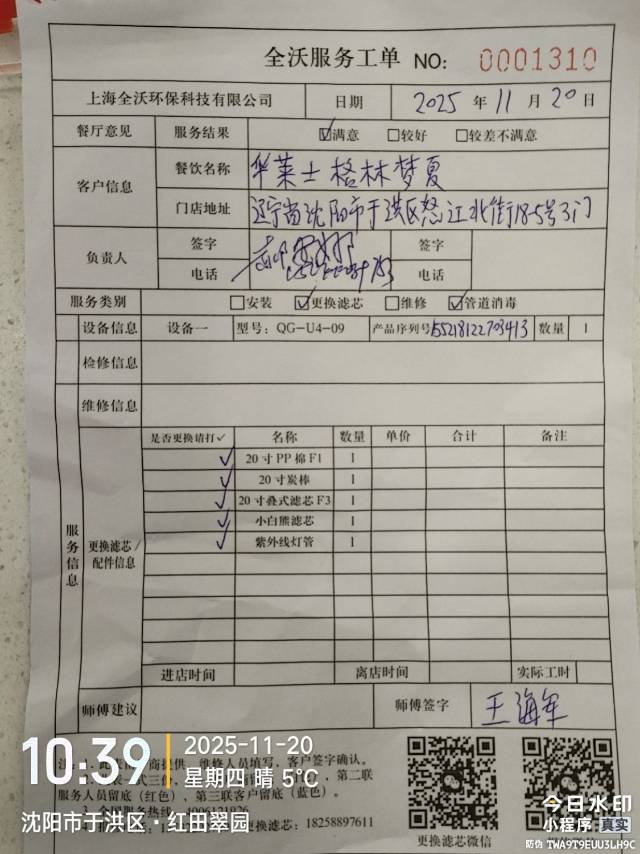 全沃服务工单 NO: 0001310
上海全沃环保科技有限公司 日期 2025 年 11 月 20 日
餐厅意见 服务结果 ☑满意 □较好 □较差不满意
客户信息 餐饮名称 华莱士格林梦夏
门店地址 辽宁省沈阳市于洪区怒江北街18-5号3门
负责人 签字 签字
电话 电话
服务类别 □安装 ☑更换滤芯 □维修 ☑管道消毒
服务信息
设备信息 设备一 型号: QG-U4-09 产品序列号 155218122703413 数量 1
检修信息
维修信息
更换滤芯/配件信息
是否更换请打✓ 名称 数量 单价 合计 备注
✓ 20寸PP棉F1 1
✓ 20寸炭棒 1
✓ 20寸叠式滤芯F3 1
✓ 小白熊滤芯 1
✓ 紫外线灯管 1
进店时间 离店时间 实际工时
师傅建议 师傅签字 王海军
维修人员填写,客户签字确认。
第二联
服务人员留底(红色),第三联客户留底(蓝色)。
18258897611
更换滤芯微信
10:39
2025-11-20
星期四 晴 5℃
沈阳市于洪区·红田翠园
今日水印
小程序 真实
防伪 TWA9T9EUU3LH9C